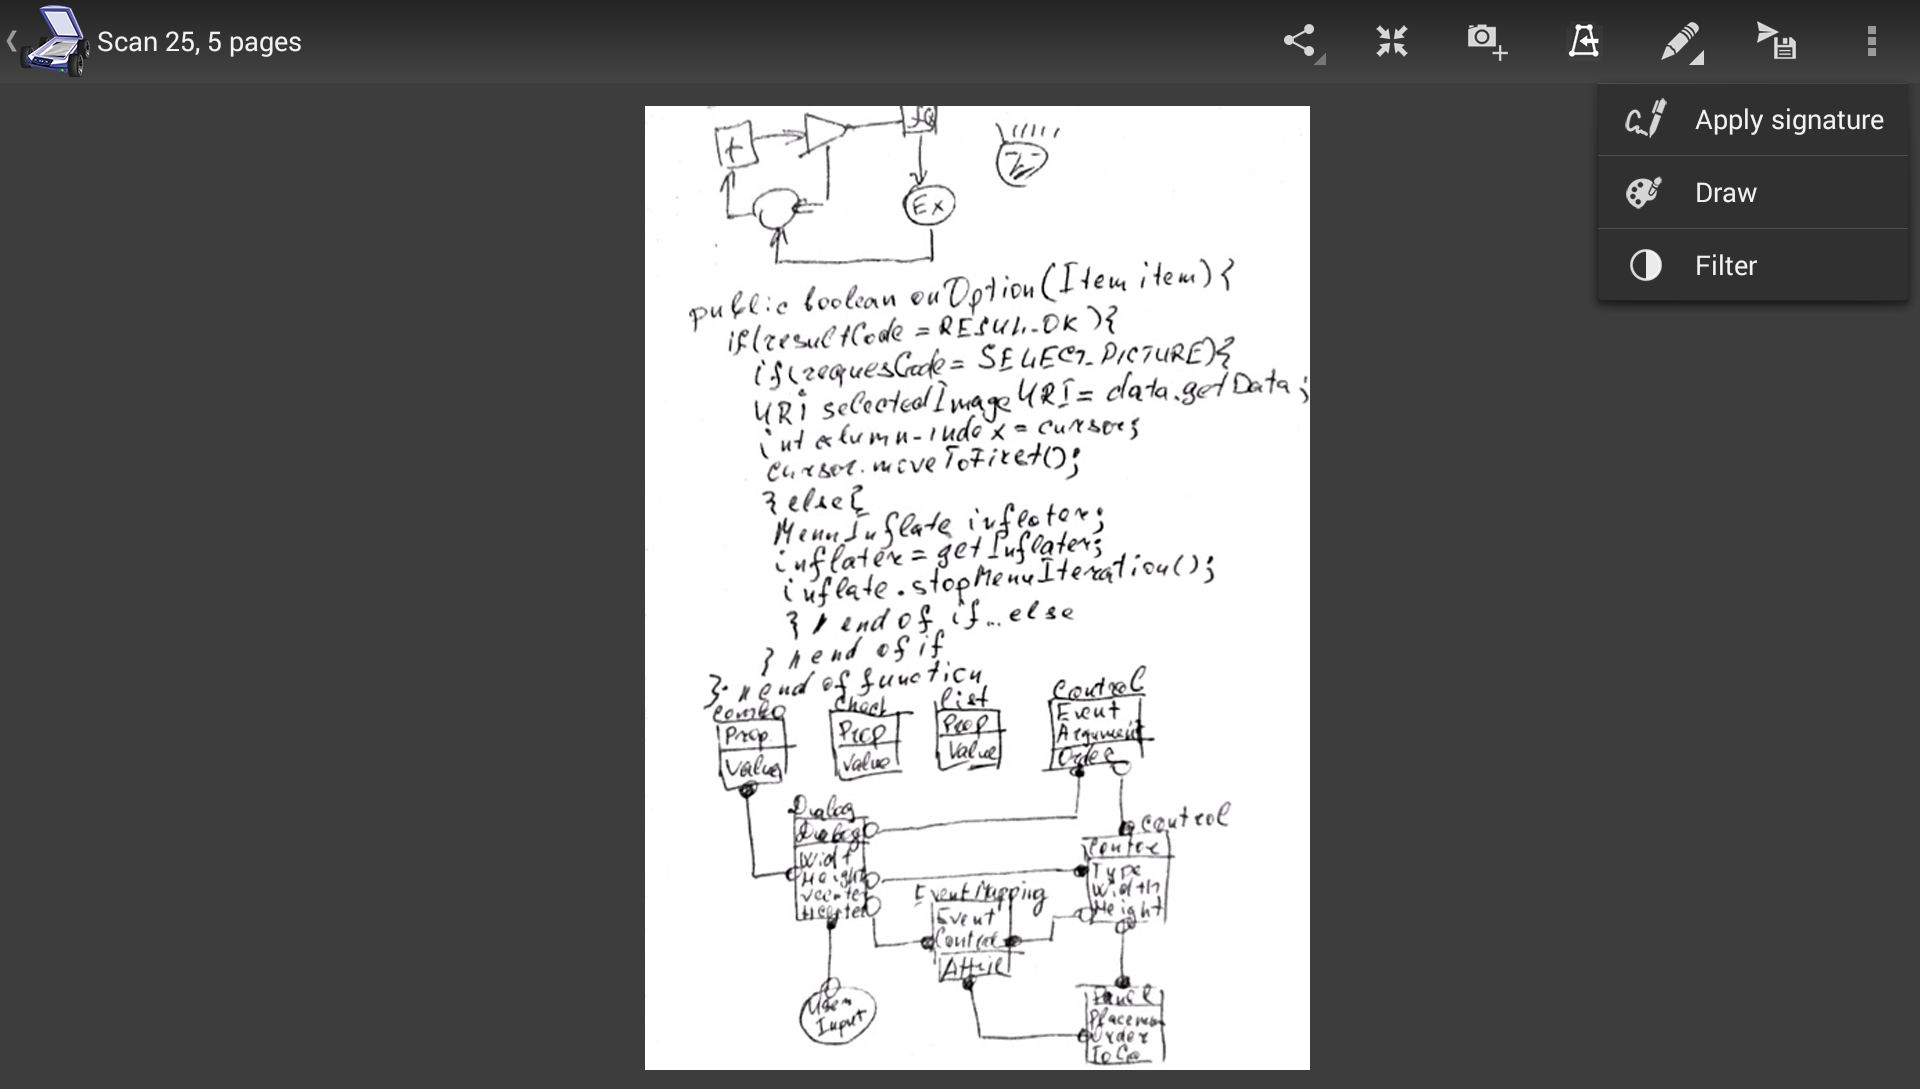 Scan 25, 5 pages
Apply signature
Draw
Filter
+
Ex
public boolean onOption(Item item){
if(resultCode = RESUL_OK){
if(requesCode = SELECT_PICTURE){
URi selectedImageURI = data.getData;
int column-index = cursor;
cursor.moveToFirst();
} else{
MenuInflate inflater;
inflater = getInflater;
inflate.stopMenuIteration();
} end of if...else
} end of if
} end of function
Combo
Prop
Value
Check
Prop
Value
List
Prop
Value
Control
Event
Argument
Order
Dialog
Dialog
Widt
Height
Vcenter
Hcenter
Control
Type
Width
Height
EventMapping
Event
Control
Attrib
User
Input
Panel
Placemen
Order